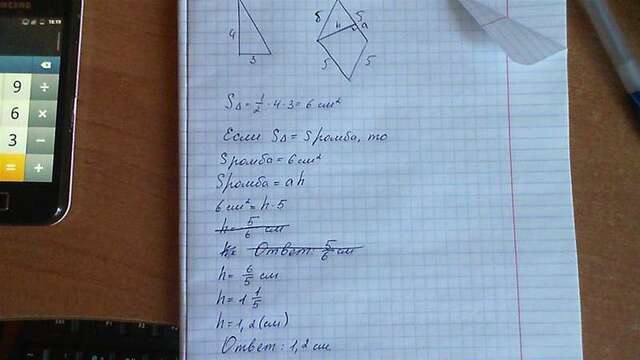 SAMSUNG
18:19
9 ÷
6 ×
3 −
= +
4
3
5 5
h a
5 5
S△ = 1/2 · 4 · 3 = 6 см²
Если S△ = Sромба, то
Sромба = 6 см²
Sромба = ah
6 см² = h · 5
h = 5/6 см
Ответ: 5/6 см
h = 6/5 см
h = 1 1/5
h = 1,2 (см)
Ответ: 1,2 см